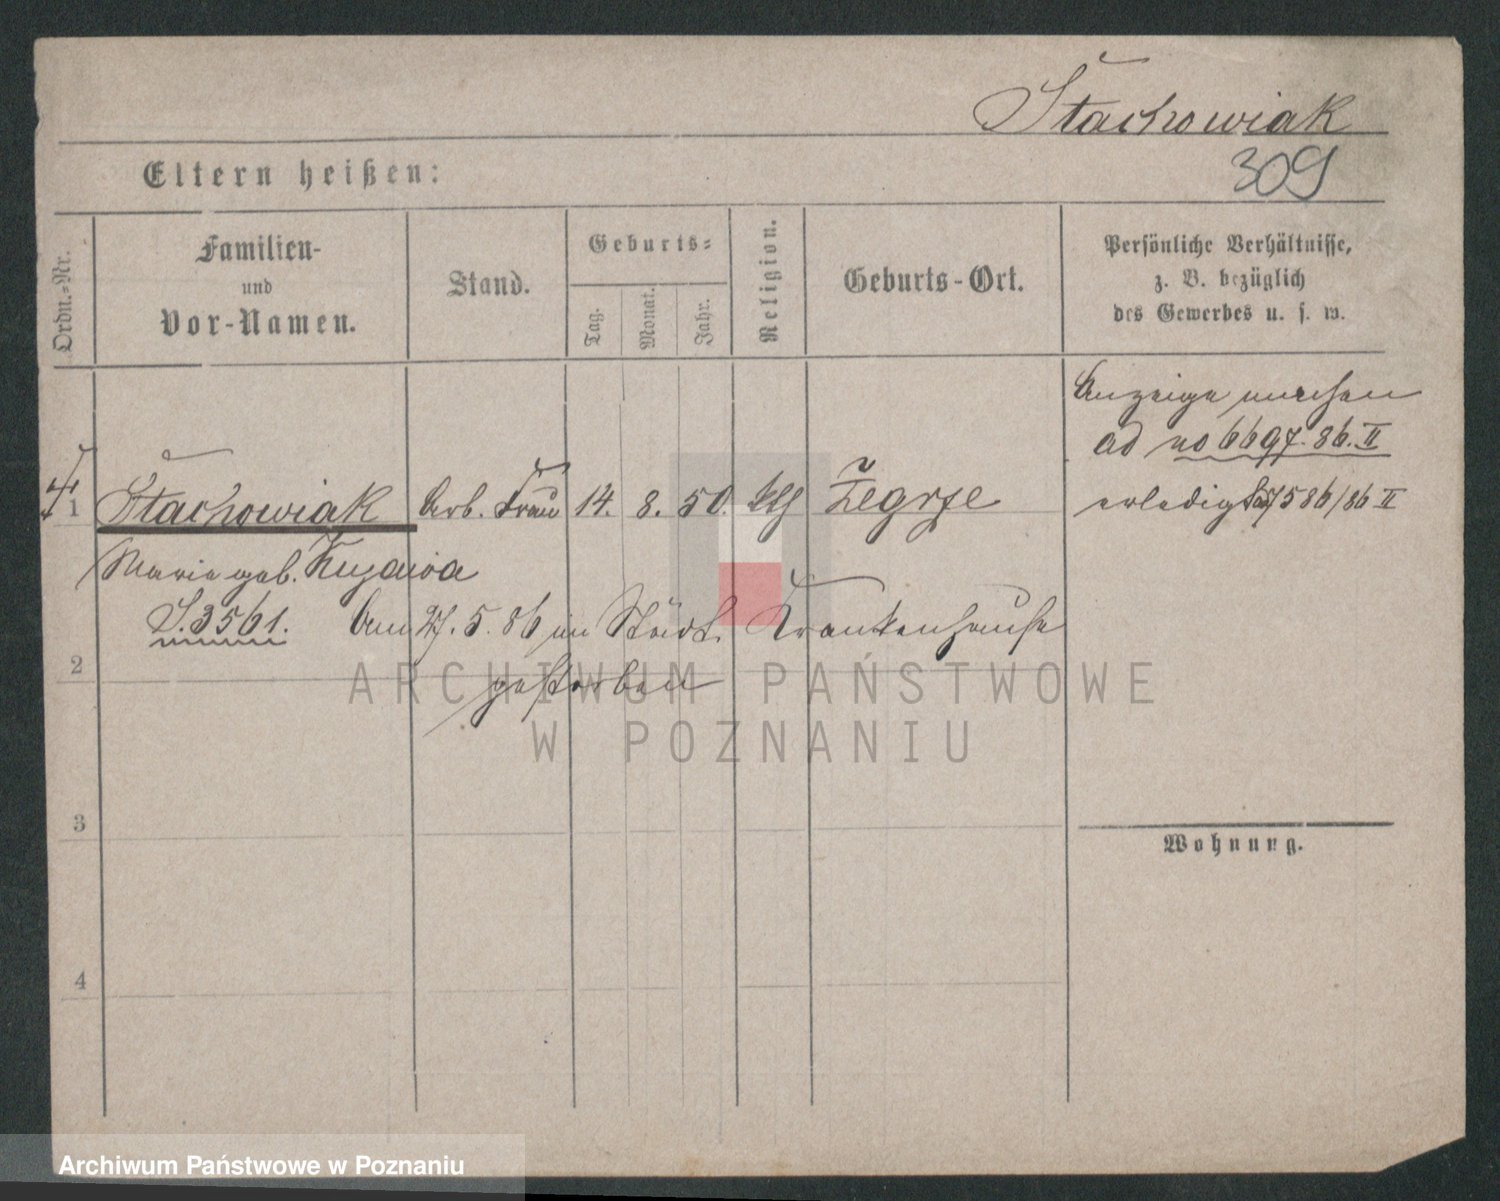 Stachowiak
309
Eltern heißen:
Ordn.-Nr.
Familien-
und
Vor-Namen.
Stand.
Geburts-
Tag.
Monat.
Jahr.
Religion.
Geburts-Ort.
Persönliche Verhältnisse,
z. B. bezüglich
des Gewerbes u. s. w.
Anzeige machen
ad no 6697.86.II
1 Stachowiak Arb. Frau 14. 8. 50. kth Zegrze erledigt 7586/86 II
Marie geb. Kujawa
S. 3561. Am 27. 5. 86 im Städt. Krankenhause
2
gestorben
ARCHIWUM PAŃSTWOWE
W POZNANIU
3
Wohnung.
4
Archiwum Państwowe w Poznaniu